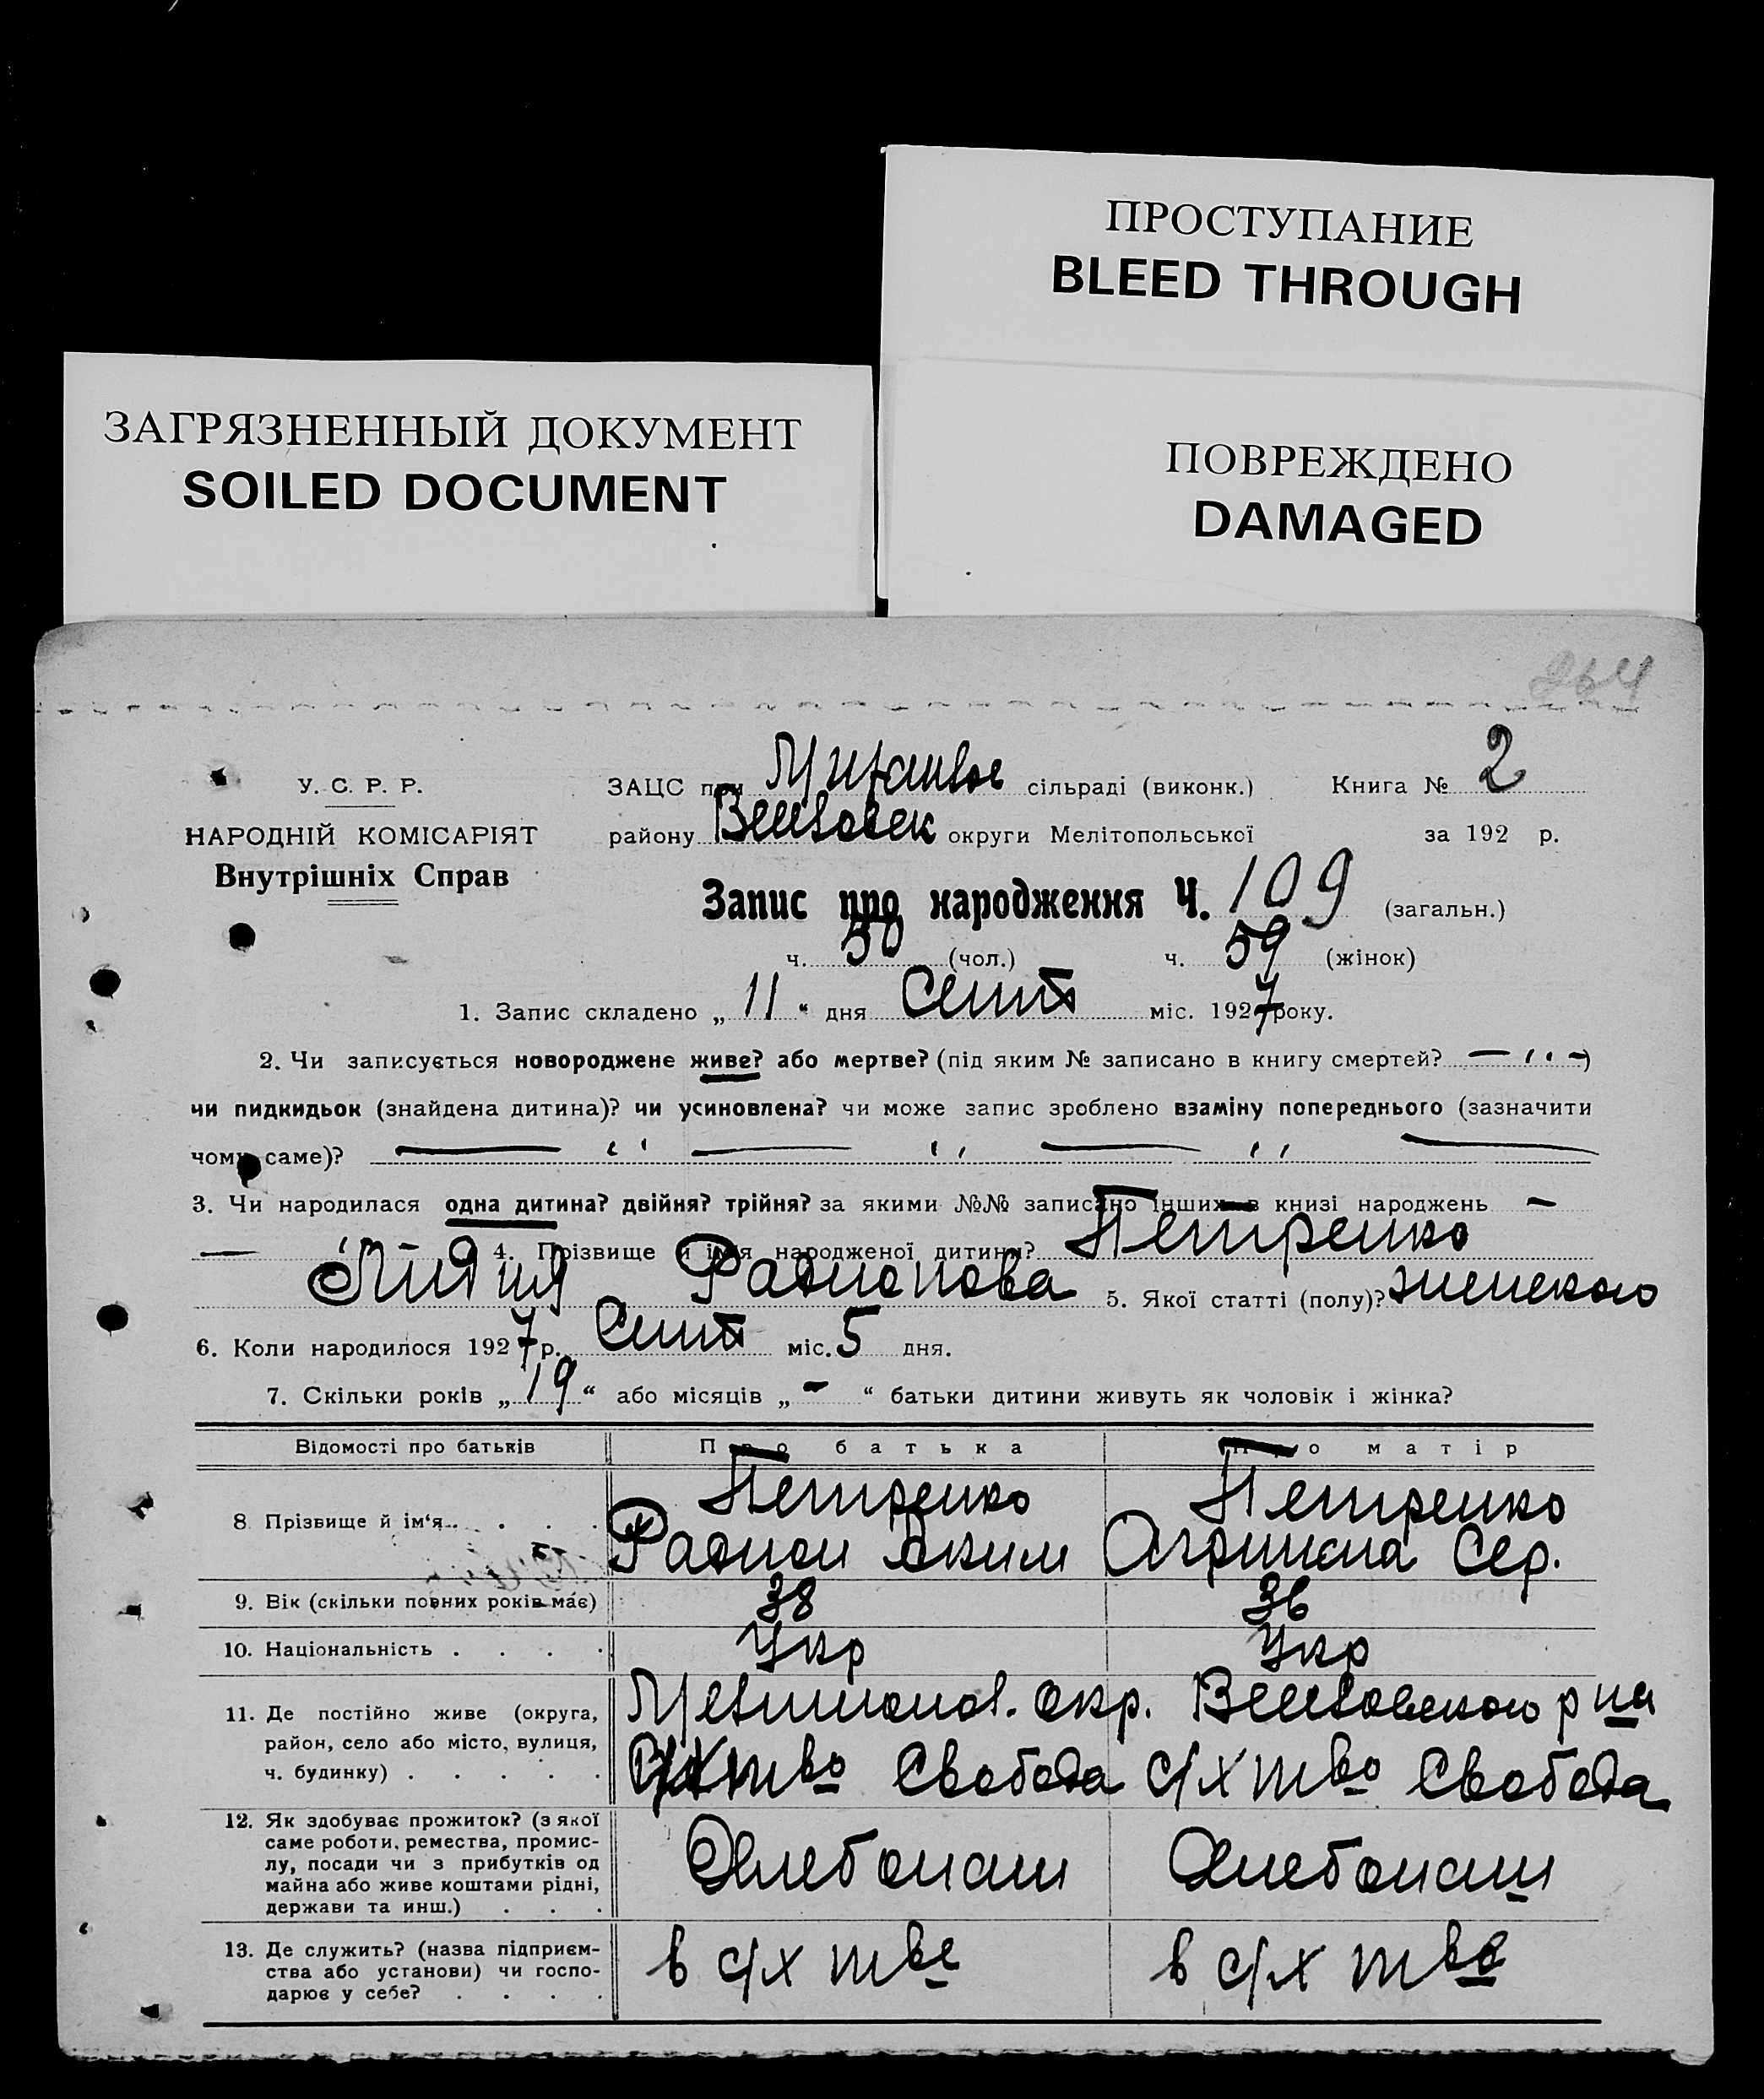 ПРОСТУПАНИЕ
BLEED THROUGH
ЗАГРЯЗНЕННЫЙ ДОКУМЕНТ
SOILED DOCUMENT
ПОВРЕЖДЕНО
DAMAGED
264
У. С. Р. Р.
НАРОДНІЙ КОМІСАРІЯТ
Внутрішніх Справ
ЗАЦС при сільраді (виконк.) Книга № 2
району округи Мелітопольської за 192 р.
Запис про народження Ч. 109 (загальн.)
ч. 50 (чол.) ч. 59 (жінок)
1. Запис складено „ 11 “ дня Сент міс. 1927 року.
2. Чи записується новороджене живе? або мертве? (під яким № записано в книгу смертей? — „ —)
чи пидкидьок (знайдена дитина)? чи усиновлена? чи може запис зроблено взаміну попереднього (зазначити
чому саме)? — „ — „ — „ —
3. Чи народилася одна дитина? двійня? трійня? за якими №№ записано інших в книзі народжень —
— 4. Прізвище й ім'я народженої дитини? Петренко
Лидия Радионова 5. Якої статті (полу)? женского
6. Коли народилося 1927 р. Сент міс. 5 дня.
7. Скільки років „ 19 “ або місяців „ - “ батьки дитини живуть як чоловік і жінка?
Відомості про батьків Про батька Про матір
8 Прізвище й ім'я . . . . Петренко Радион Аким Петренко Агрипена Сер.
9. Вік (скільки повних років має) 38 36
10. Національність . . . . Укр Укр
11. Де постійно живе (округа,
район, село або місто, вулиця,
ч. будинку) . . . . .
Мелитопол. окр. р на
с/х тво Свобода с/х тво Свобода
12. Як здобуває прожиток? (з якої
саме роботи, ремества, промис-
лу, посади чи з прибутків од
майна або живе коштами рідні,
держави та инш.) . . .
Хлебопаш Хлебопаш
13. Де служить? (назва підприєм-
ства або установи) чи госпо-
дарює у себе? . . . .
в с/х тве в с/х тве